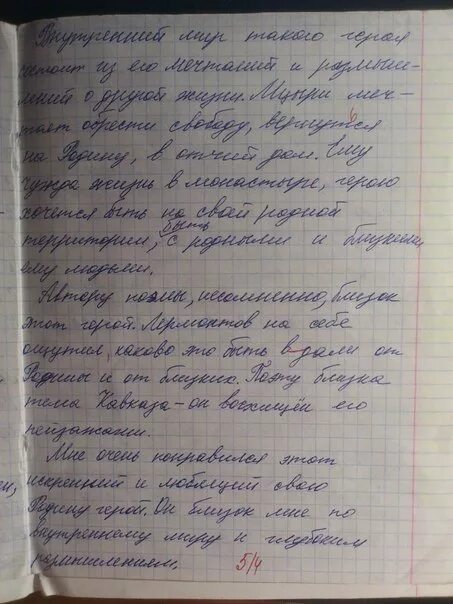 Внутренний мир такого героя
состоит из его мечтаний и размыш-
лений о другой жизни. Мцыри меч-
тает обрести свободу, вернутся
на Родину, в отчий дом. Ему
чужда жизнь в монастыре, герою
хочется быть на свой родной
территории, быть с родными и близкими
ему людьми.
Автору поэмы, несомненно, близок
этот герой. Лермонтов на себе
ощутил, каково это быть в дали от
Родины и от близких. Поэту близка
тема Кавказа - он восхищён его
пейзажами.
Мне очень понравился этот
искренний и любящий свою
Родину герой. Он близок мне по
внутреннему миру и глубоким
размышлениям.
5/4